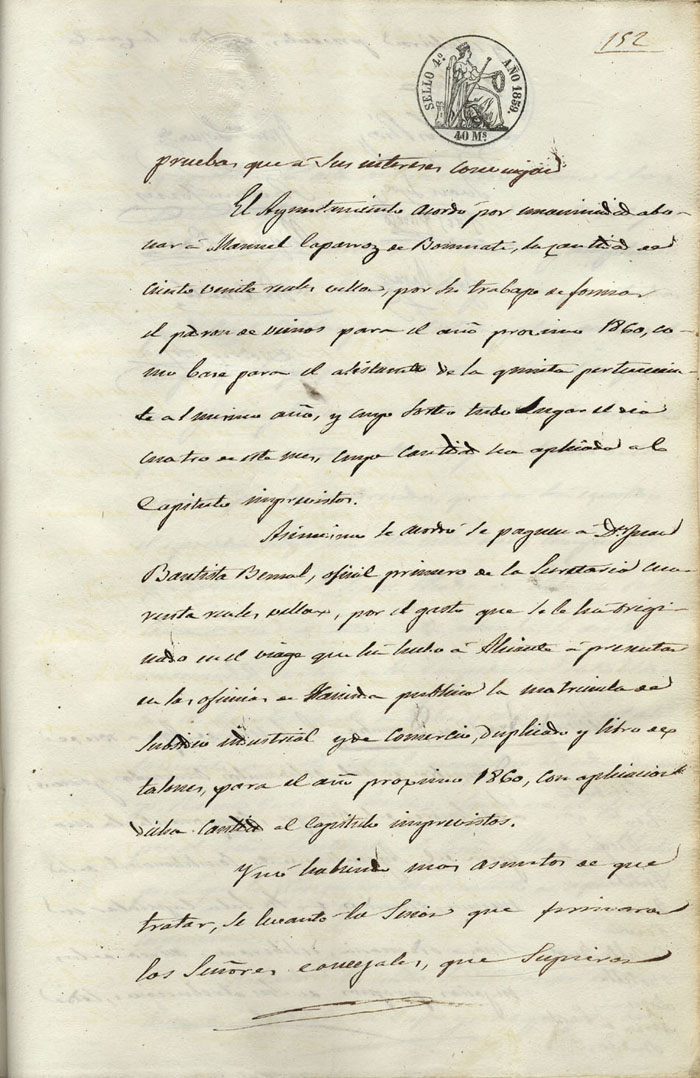 152
SELLO 4º AÑO 1859.
40 Ms.
pruebas que à sus intereses convenga
El Ayuntamiento acordó por unanimidad abo-
nar à Manuel Caparroz de la cantidad de
ciento veinte reales vellon, por su trabajo de formar
el padron de vecinos para el año procsimo 1860, co-
mo base para el alistamto de la quinta pertenecien-
te al mismo año, y cuyo sorteo tendrá lugar el dia
cuatro de este mes, cuya cantidad sea aplicada al
Capitulo imprevistos.
Asimismo se acordó se paguen à Dn Juan
Bautista Bernal, oficial primero de la Secretaria cua-
renta reales vellon, por el gasto que se le ha origi-
nado en el viage que ha hecho à Alicante à presentar
en las oficinas de Hacienda publica la matricula de
Subsidio industrial y de Comercio, duplicado y libro de
talones, para el año procsimo 1860, con aplicacion de
dicha cantidad al Capitulo imprevistos.
Y no habiendo mas asuntos de que
tratar, se levantó la Sesion que firmaron
los Señores concejales, que supieron